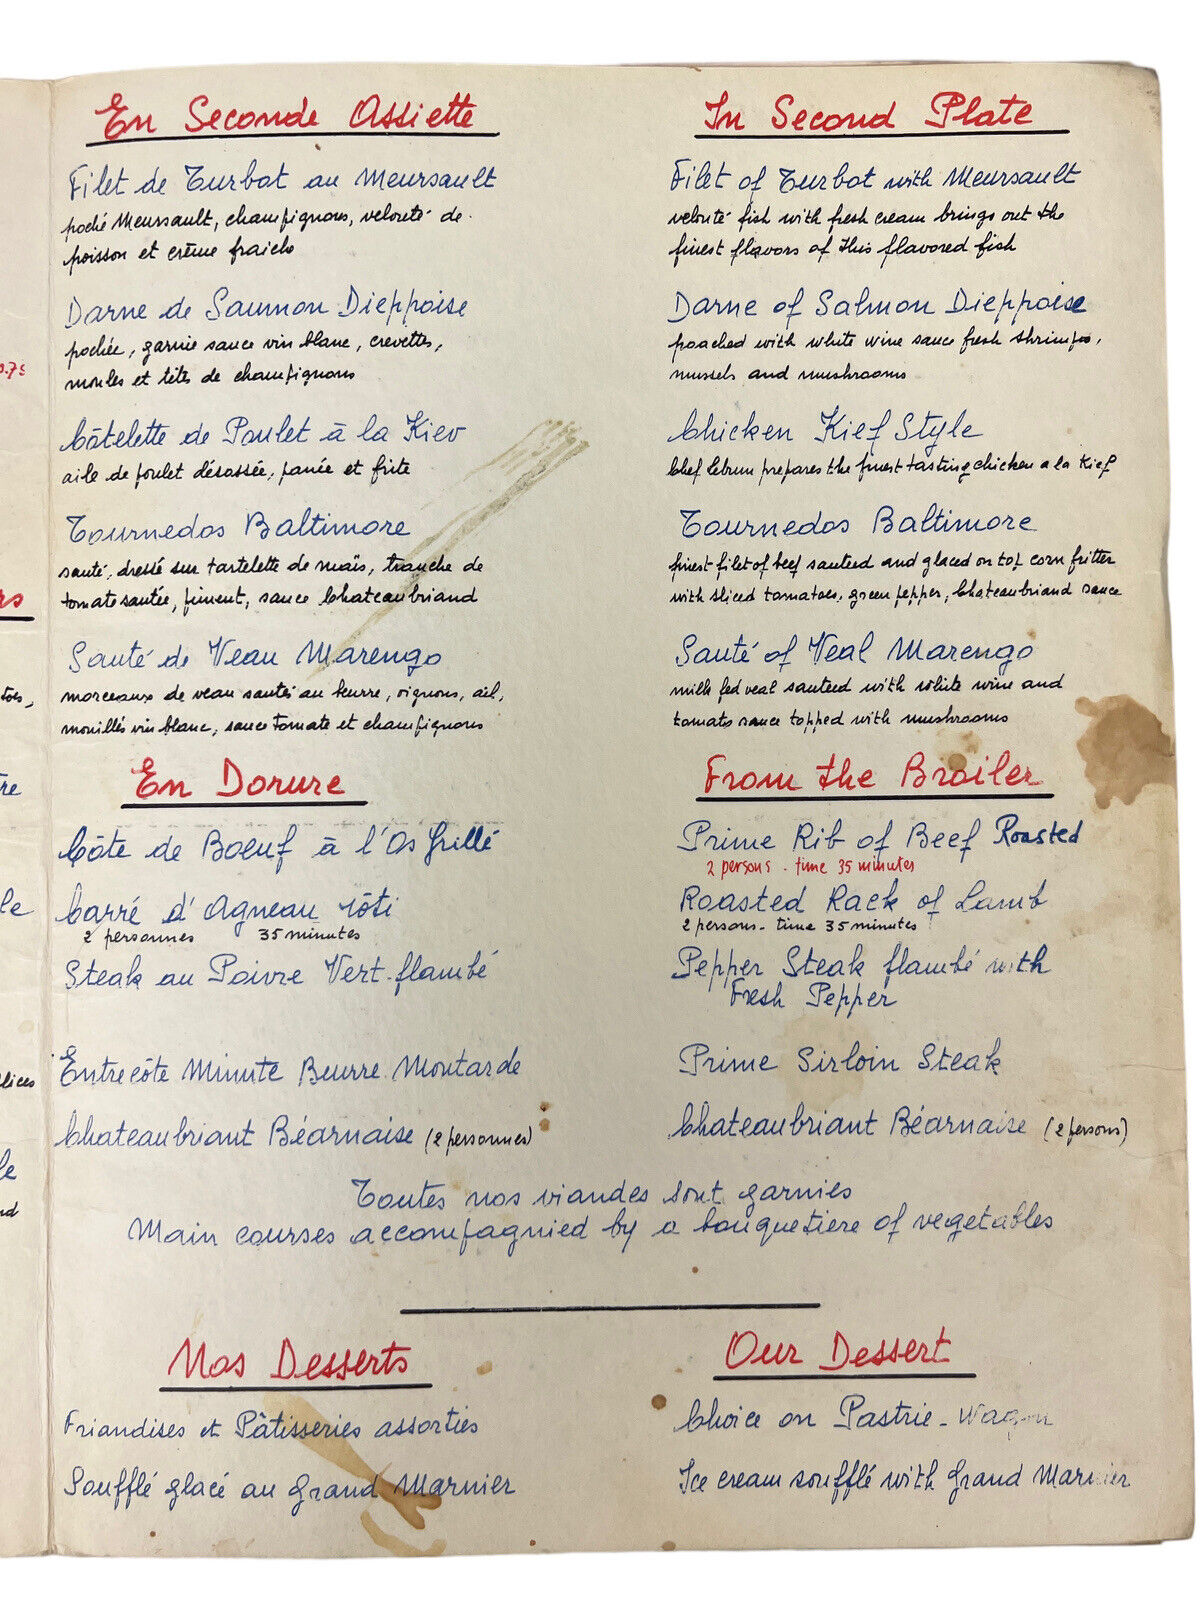 En Seconde Assiette
Filet de Turbot au Meursault
poché Meursault, champignons, velouté de
poisson et crème fraiche
Darne de Saumon Dieppoise
pochée, garnie sauce vin blanc, crevettes,
moules et têtes de champignons
Côtelette de Poulet à la Kiev
aile de poulet désossée, panée et frite
Tournedos Baltimore
sauté, dressé sur tartelette de maïs, tranche de
tomate sautée, piment, sauce Chateaubriand
Sauté de Veau Marengo
morceaux de veau sautés au beurre, oignons, ail,
mouillés vin blanc, sauce tomate et champignons
En Dorure
Côte de Boeuf à l'Os Grillé
Carré d'Agneau rôti
2 personnes 35 minutes
Steak au Poivre Vert flambé
Entrecôte Minute Beurre Moutarde
Chateaubriant Béarnaise (2 personnes)
In Second Plate
Filet of Turbot with Meursault
velouté fish with fresh cream brings out the
finest flavors of this flavored fish
Darne of Salmon Dieppoise
poached with white wine sauce fresh shrimps,
mussels and mushrooms
Chicken Kief Style
Chef Lebrun prepares the finest tasting chicken a la Kief
Tournedos Baltimore
finest filet of beef sauteed and glaced on top corn fritter
with sliced tomatoes, green pepper, Chateaubriand sauce
Sauté of Veal Marengo
milk fed veal sauteed with white wine and
tomato sauce topped with mushrooms
From the Broiler
Prime Rib of Beef Roasted
2 persons - time 35 minutes
Roasted Rack of Lamb
2 persons - time 35 minutes
Pepper Steak flambé with
Fresh Pepper
Prime Sirloin Steak
Chateaubriant Béarnaise (2 persons)
Toutes nos viandes sont garnies
Main courses accompagnied by a bouquetiere of vegetables
Nos Desserts
Friandises et Pâtisseries assorties
Soufflé glacé au Grand Marnier
Our Dessert
Choice on Pastrie-Wagon
Ice cream soufflé with Grand Marnier